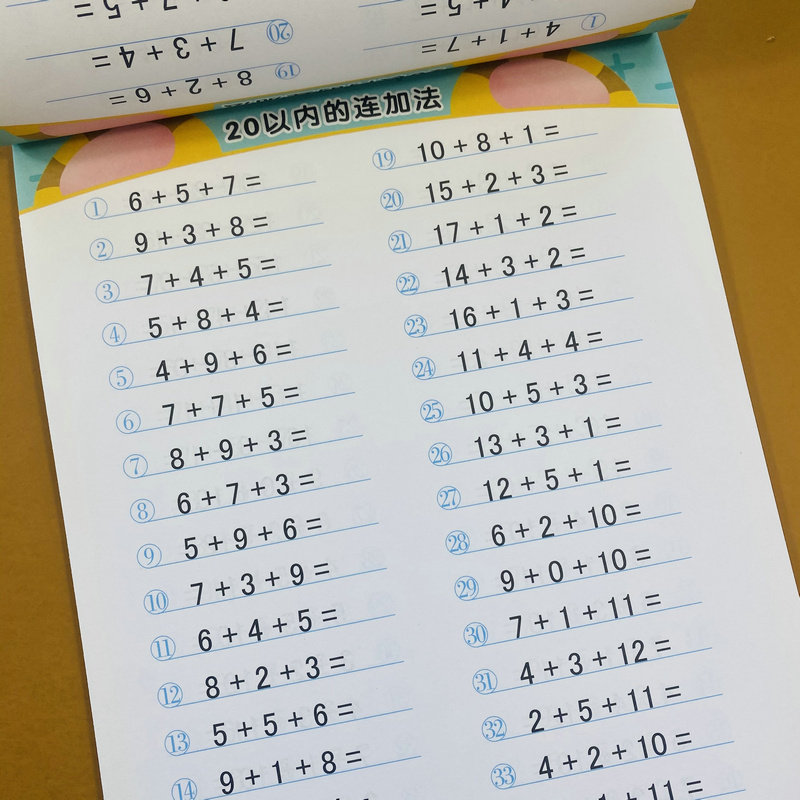 7 + 3 + 4 =
⑳
4 + 1 + 7 =
8 + 2 + 6 =
⑲
20以内的连加法
① 6 + 5 + 7 =
② 9 + 3 + 8 =
③ 7 + 4 + 5 =
④ 5 + 8 + 4 =
⑤ 4 + 9 + 6 =
⑥ 7 + 7 + 5 =
⑦ 8 + 9 + 3 =
⑧ 6 + 7 + 3 =
⑨ 5 + 9 + 6 =
⑩ 7 + 3 + 9 =
⑪ 6 + 4 + 5 =
⑫ 8 + 2 + 3 =
⑬ 5 + 5 + 6 =
⑭ 9 + 1 + 8 =
⑲ 10 + 8 + 1 =
⑳ 15 + 2 + 3 =
㉑ 17 + 1 + 2 =
㉒ 14 + 3 + 2 =
㉓ 16 + 1 + 3 =
㉔ 11 + 4 + 4 =
㉕ 10 + 5 + 3 =
㉖ 13 + 3 + 1 =
㉗ 12 + 5 + 1 =
㉘ 6 + 2 + 10 =
㉙ 9 + 0 + 10 =
㉚ 7 + 1 + 11 =
㉛ 4 + 3 + 12 =
㉜ 2 + 5 + 11 =
㉝ 4 + 2 + 10 =
+ 11 =